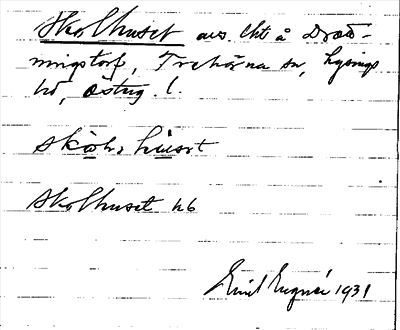 Skolhuset avs. lht å Drott-
ningstorp, Trehörna sn, Lysings
hd, Östug. l.
skὼlhúsrt
Skolhuset hb
Emil Lugnér 1931